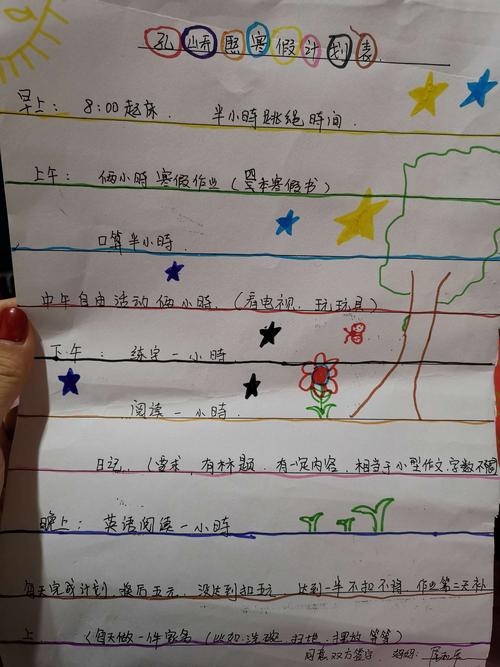 孔 照寒假计划表
早上： 8:00起床 半小时跳绳时间
上午： 俩小时寒假作业（四本寒假书）
口算半小时
中午自由活动俩小时.（看电视、玩玩具）
下午： 练字一小时
阅读一小时
日记.（需求，有标题.有一定内容，相当于小型作文,字数不限
晚上： 英语阅读一小时
每天完成计划 奖后五元，没达到扣五元 达到一半不扣不得 作业第二天补
上. （每天做一件家务（比如:洗碗、扫地、摆放等等）
同意双方签字 妈妈: